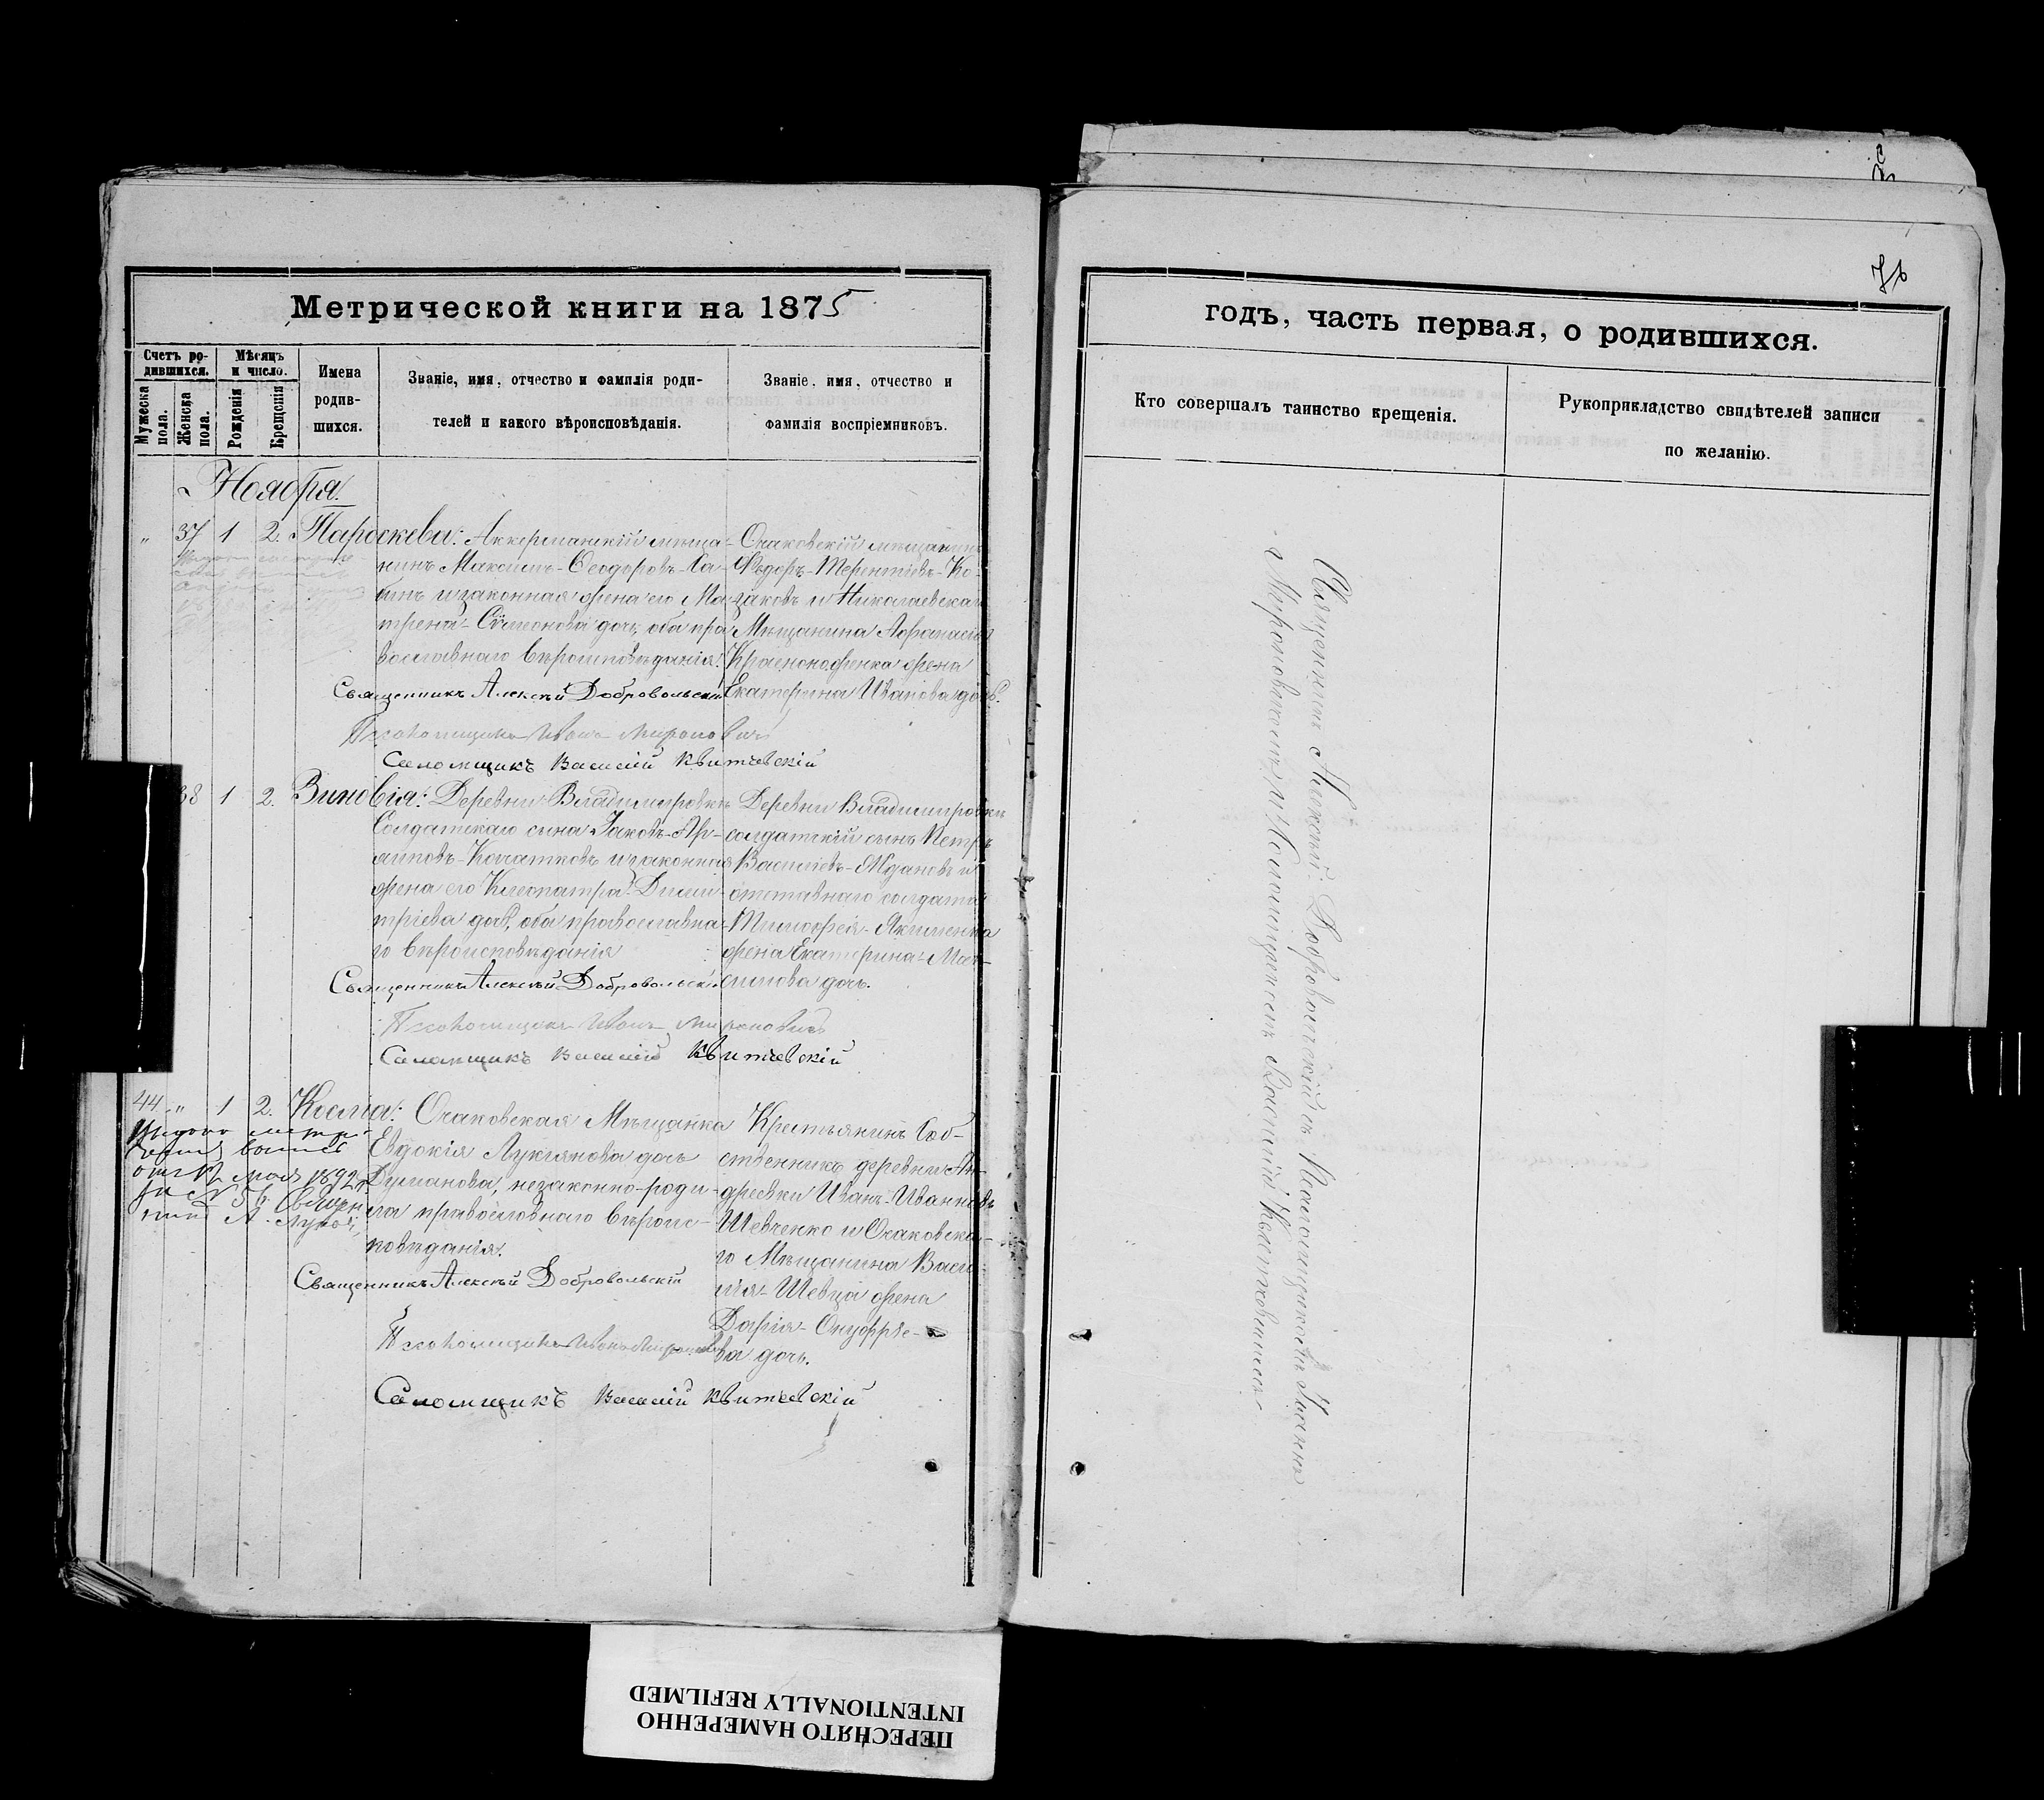 Метрической книги на 1875
Счетъ ро-
дившихся.
Мѣсяцъ
и число.
Мужеска
пола.
Женска
пола.
Рожденія
Крещенія
Имена
родив-
шихся.
Званіе, имя, отчество и фамилія роди-
телей и какого вѣроисповѣданія.
Званіе, имя, отчество и
фамилія воспріемниковъ.
Ноября.
„ 37 1 2. Параскева:
Аккерманскій мѣща-
нинъ Максимъ-Ѳеодоровъ-
и законная жена его Ма-
трена-Сѵмеонова дочь, оба пра
вославнаго вѣроисповѣданія.
Священникъ Алексѣй Добровольскій
Псаломщикъ Иванъ Мироновичъ
Псаломщикъ Василій Квитчевскій
Очаковскій мѣщанинъ
Ѳедоръ-Терентіевъ-Ко-
заковъ и Николаевскаго
Мѣщанина Афанасія
жена
Екатерина Иванова дочь.
38 1 2. Зиновія:
Деревни Владимировки
Солдатскаго сына Іаковъ-
и законная
жена его Клеопатра Дими-
тріева дочь, оба православна-
го вѣроисповѣданія
Священникъ Алексѣй Добровольскій
Псаломщикъ Иванъ Мироновичъ
Псаломщикъ Василій Квитчевскій
Деревни Владимировки
солдатскій сынъ Петръ
Василіевъ-Ждановъ и
отставнаго солдата
Тимофея-Якименка
жена Екатерина-Мак-
симова дочь.
44 „ 1 2. Косма:
Выдано метри-
ческая выпись
отъ 12 мая 1892 г.
за № 56. Священ
никъ А.
Очаковская Мѣщанка
Евдокія Лукіянова дочь
Думанова, незаконно-роди-
ла православнаго вѣроис-
повѣданія.
Священникъ Алексѣй Добровольскій
Псаломщикъ Иванъ Мироновичъ
Псаломщикъ Василій Квитчевскій
Крестьянинъ Соб-
ственникъ деревни Ан-
дреевки Иванъ-Ивановъ
Шевченко и Очаковска-
го Мѣщанина Васи-
лія-Шевца жена
Дарія-Онуфріе-
ва дочь.
годъ, часть первая, о родившихся.
Кто совершалъ таинство крещенія.
Рукоприкладство свидѣтелей записи
по желанію.
Священникъ Алексѣй Добровольскій съ Псаломщикомъ Иваномъ
Мироновичемъ и Псаломщикомъ Василіемъ Квитчевскимъ
ПЕРЕСНЯТО НАМЕРЕННО
INTENTIONALLY REFILMED